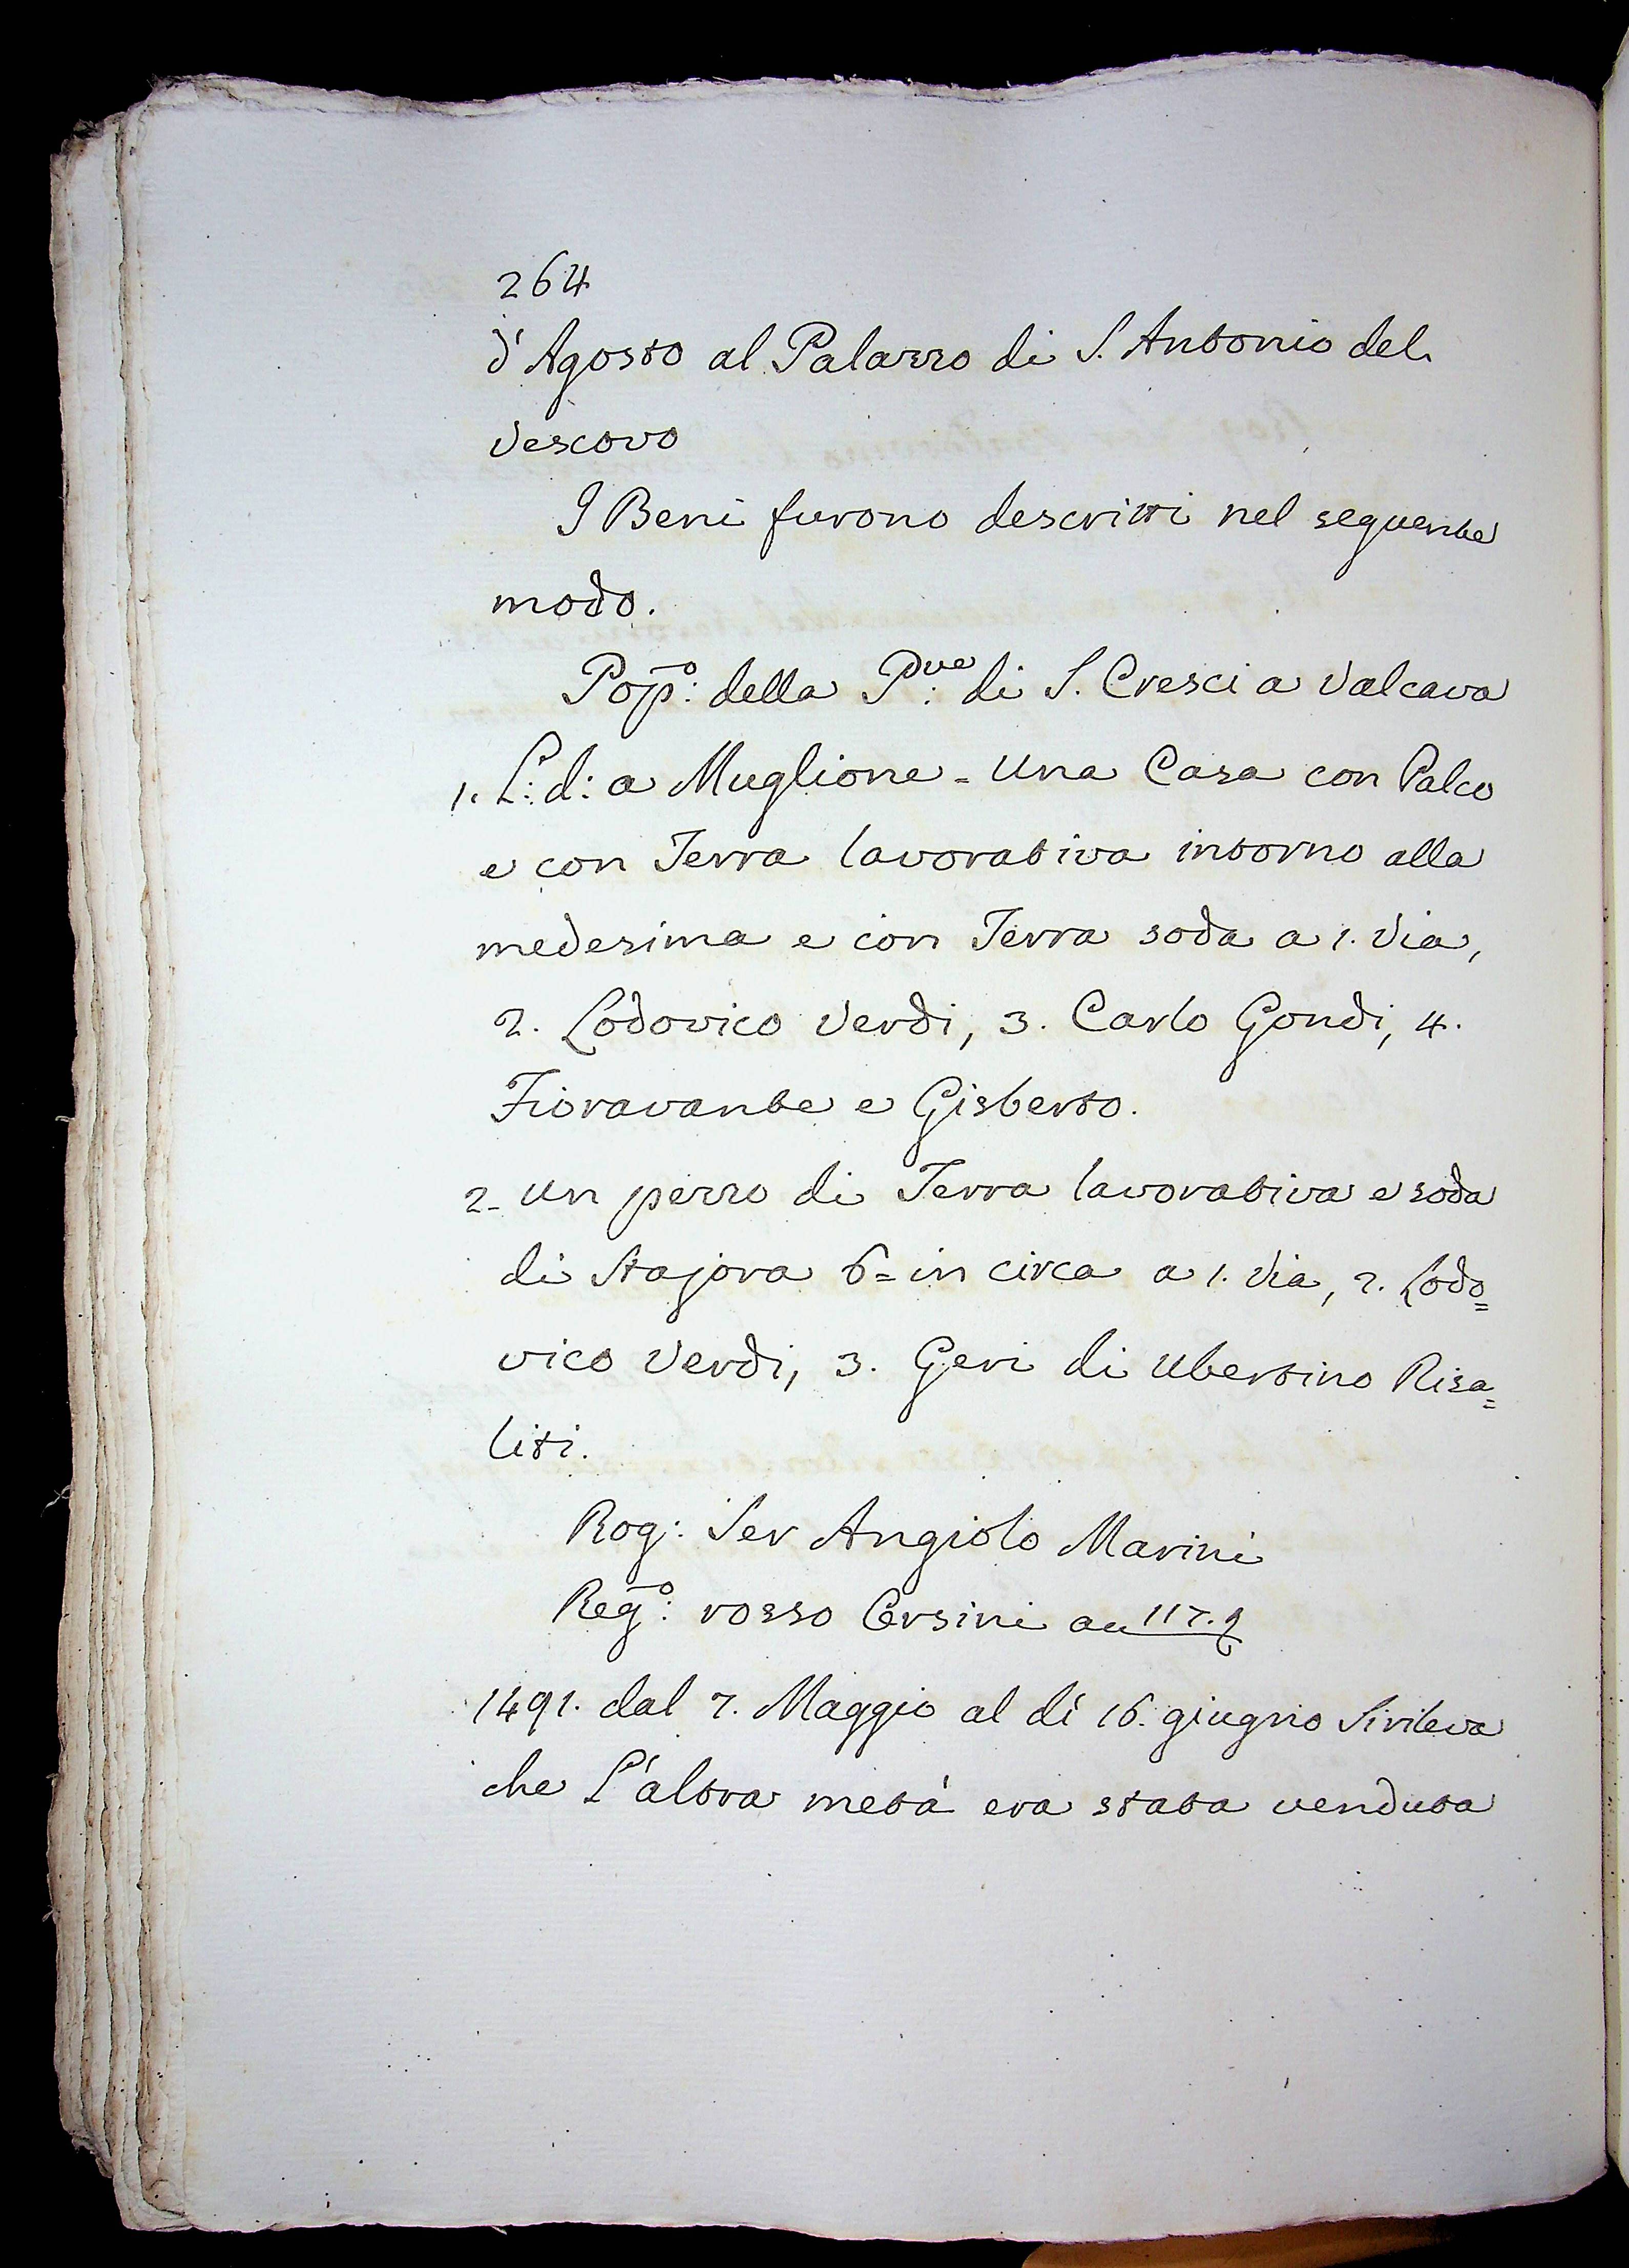 264
d'Agosto al Palazzo di S. Antonio del
Vescovo
I Beni furono descritti nel seguente
modo.
Pop.º: della P.ve: di S. Cresci a Valcava
1. L: d: a Muglione - Una Casa con Palco
e con Terra lavorativa intorno alla
medesima e con Terra soda a 1. Via,
2. Lodovico Verdi, 3. Carlo Gondi, 4.
Fioravante e Gisberto.
2- Un pezzo di Terra lavorativa e soda
di Stajora 6= in circa a 1. Via, 2. Lodo=
vico Verdi, 3. Geri di Ubertino Risa=
liti.
Rog: Ser Angiolo Marini
Reg.º: rosso Orsini a 117.
1491. dal 7. Maggio al dì 16. giugno Si rileva
che L'altra metà era stata venduta